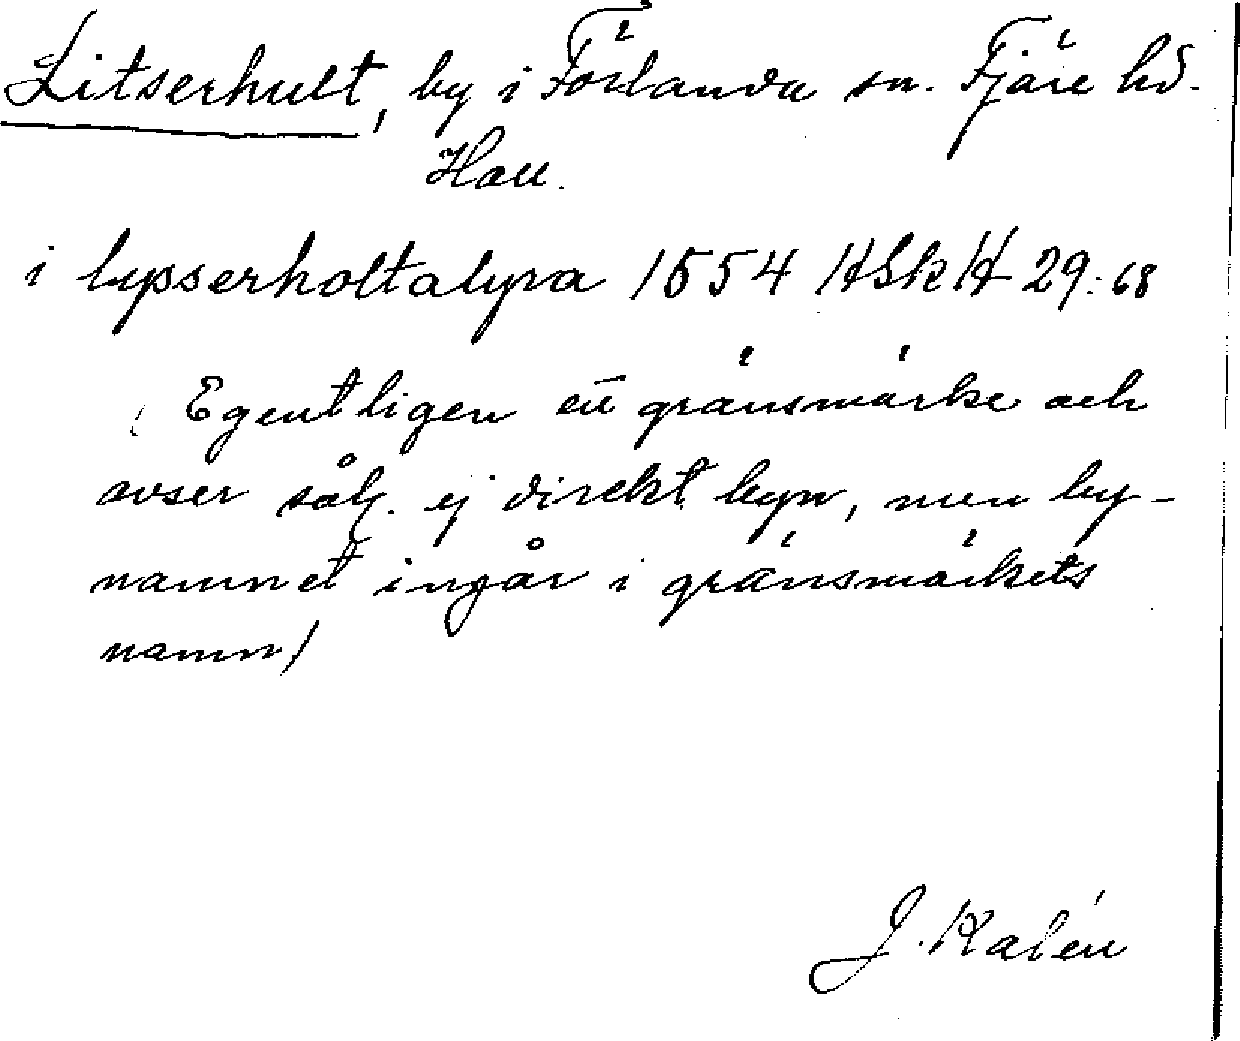 Litserhult, by i Förlanda sn. Fjäre hd.
Hall.
i lysserholtalyra 1554 HSkH 29:68
( Egentligen ett gränsmärke och
avser sålg. ej direkt byn, men by-
namnet ingår i gränsmärkets
namn)
J. Kalén